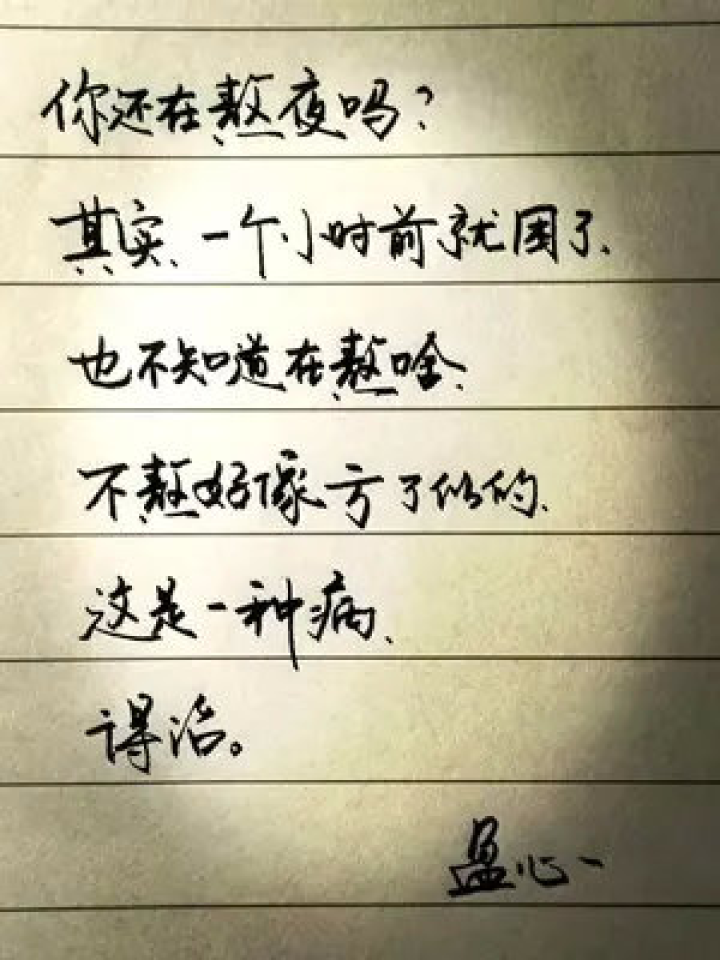 你还在熬夜吗?
其实、一个小时前就困了、
也不知道在熬啥、
不熬好像亏了似的、
这是一种病、
得治。
盈心一